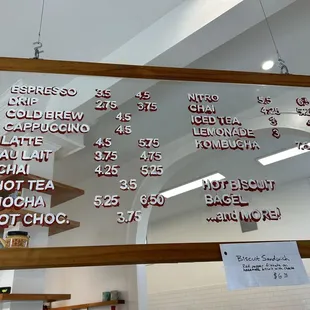 ESPRESSO 3.5 4.5
DRIP 2.75 3.75
COLD BREW 4.5
CAPPUCCINO 4.5
LATTE 4.5 5.75
AU LAIT 3.75 4.75
CHAI 4.25 5.25
HOT TEA 3.5
MOCHA 5.25 6.50
HOT CHOC. 3.75
NITRO 5.5
CHAI 4.25
ICED TEA 3
LEMONADE 3
KOMBUCHA
HOT BISCUIT
BAGEL
...and MORE!
Biscuit Sandwich
$6